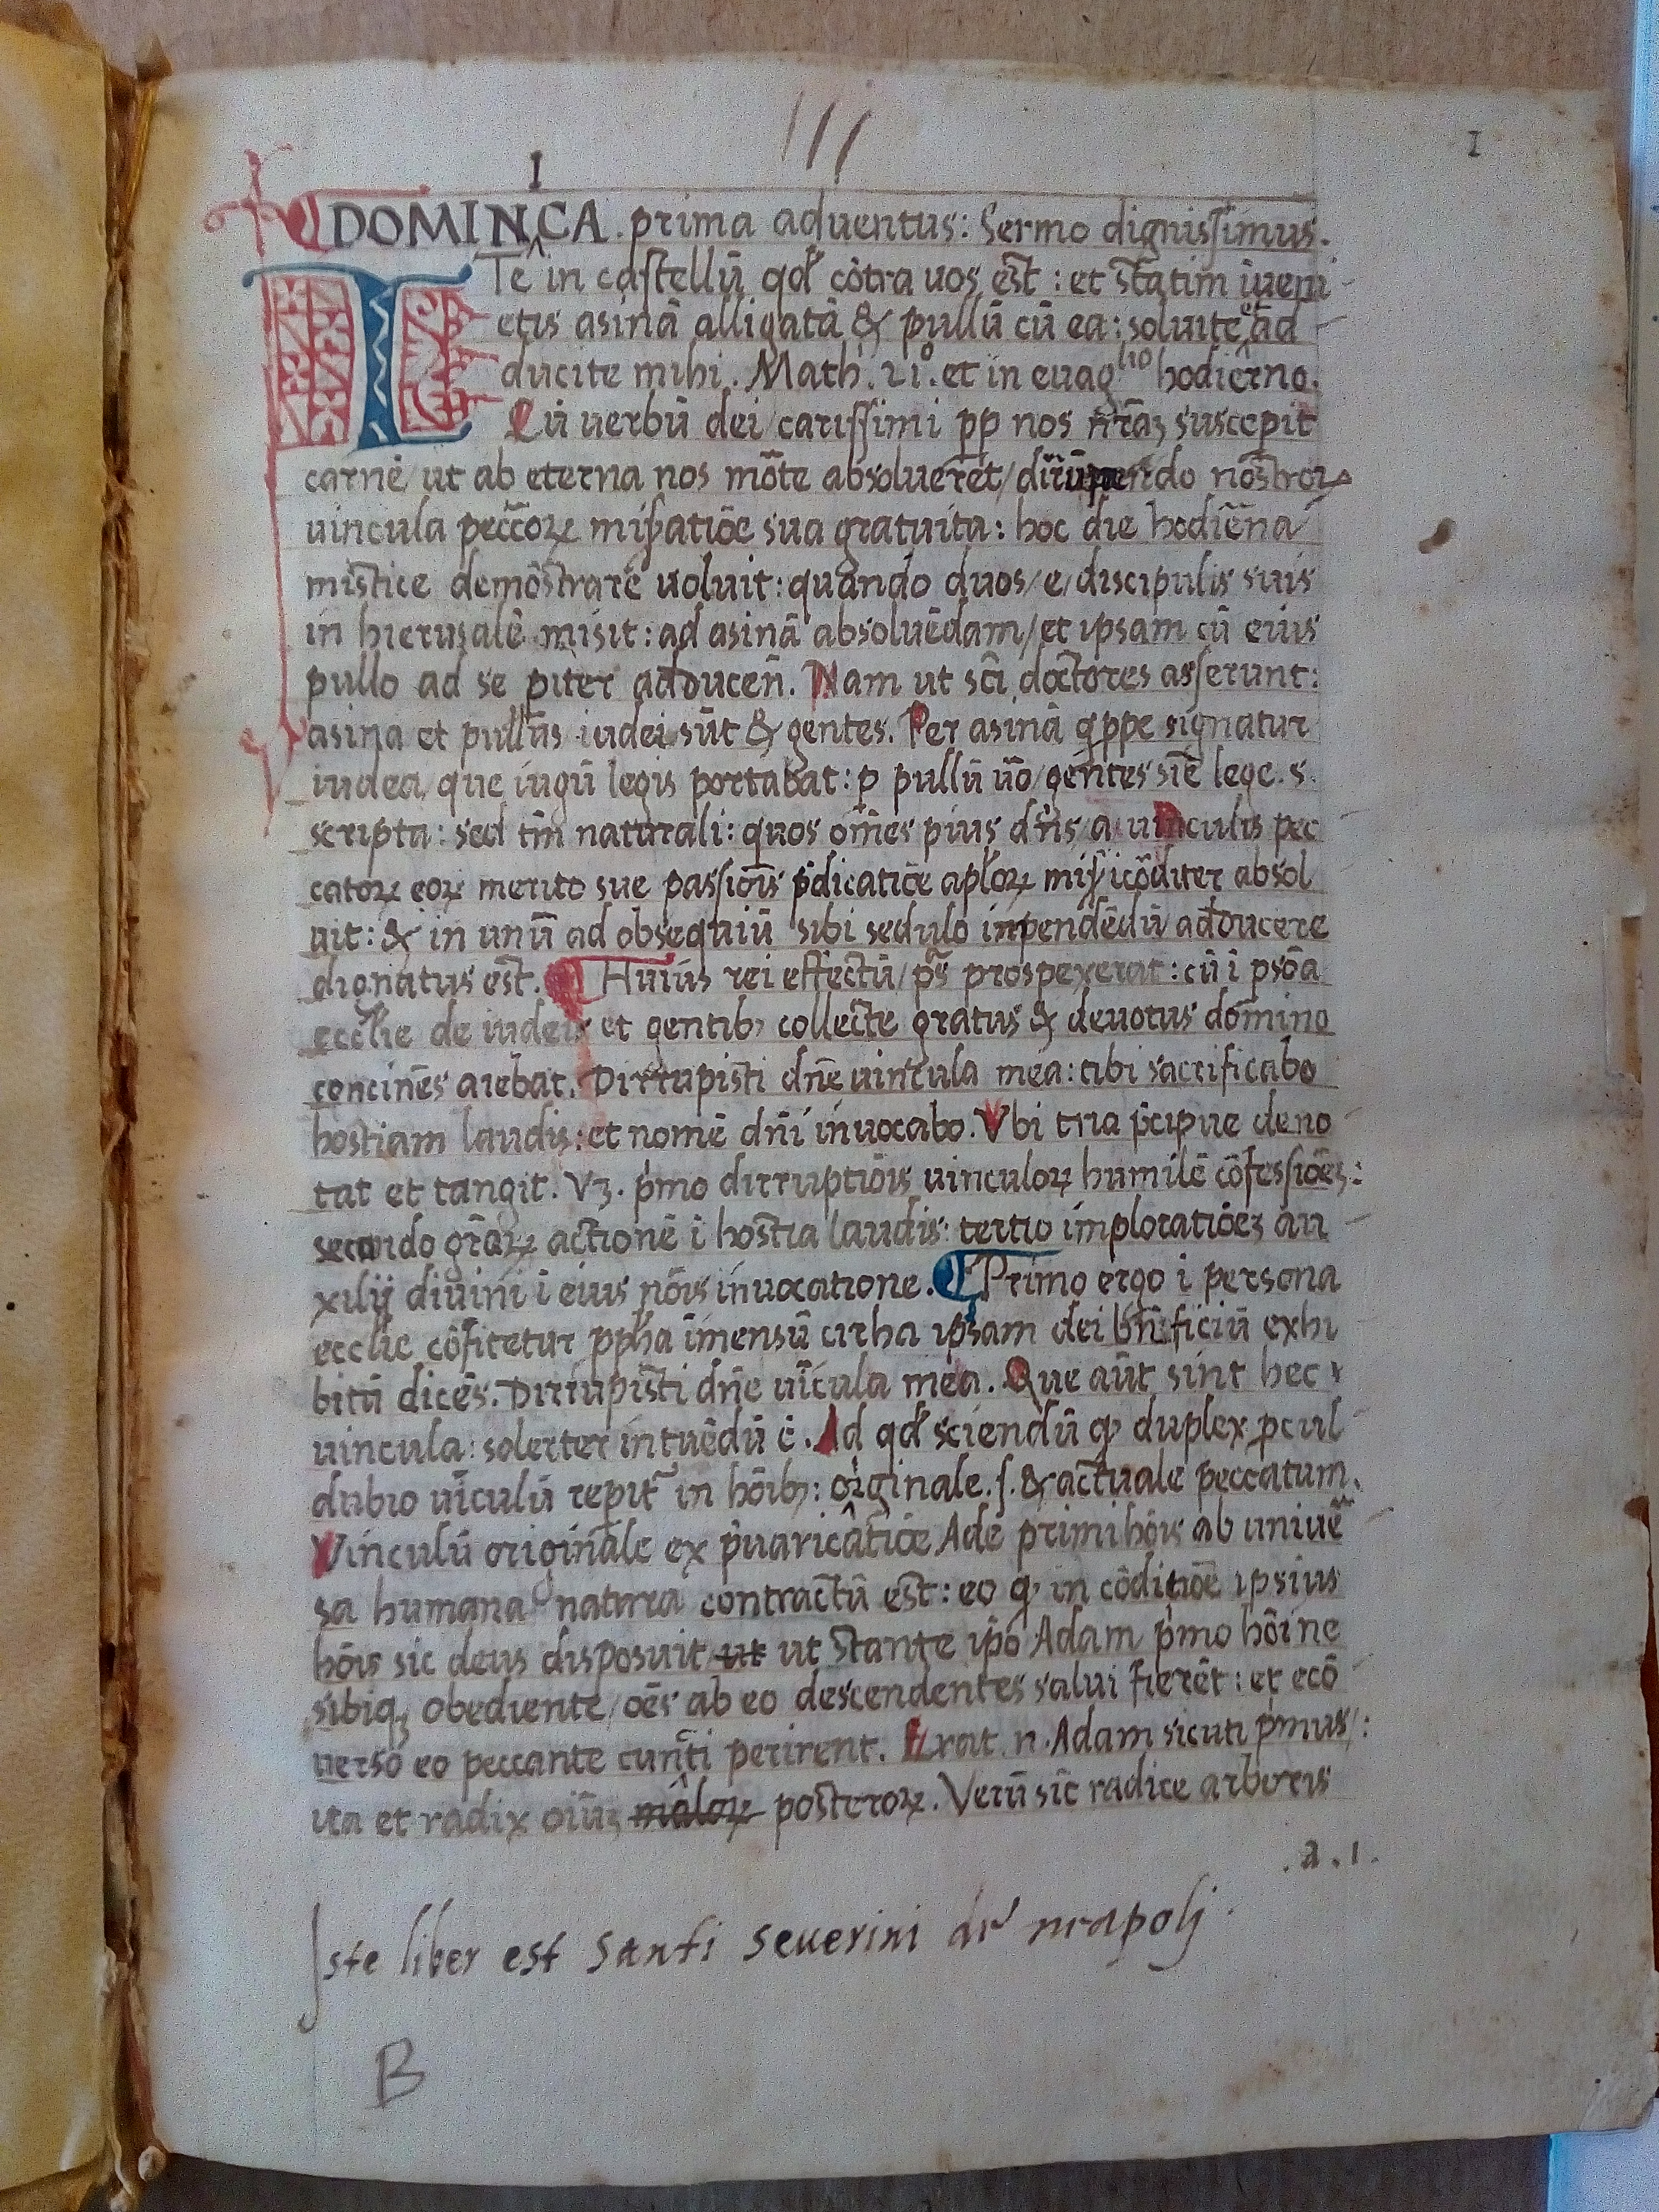 III
1
I
DOMINCA. prima aduentus: Sermo dignissimus.
ITe in castellū qd̄ cōtra uos est: et statim īueni
etis asinā alligatā & pullū cū ea: soluite et ad
ducite mihi. Math. 21°. et in euāglio hodierno.
Cū uerbū dei carissimi pp nos nr̄aʒ suscepit
carnē/ ut ab eterna nos mōte absolueret/ nostroꝝ
uincula pecc̄oꝝ mis̄atiōe sua gratuita: hoc die hodiēna
mistice demōstrare uoluit: quando duos/e/discipulis suis
in hierusalē misit: ad asinā absoluēdam/et ipsam cū eius
pullo ad se pīter adducen̄. Nam ut sc̄i doctores asserunt:
asina et pullus iudei sūt & gentes. Per asinā q̄ppe signatur
iudea, que iugū legis portabat: p̄ pullū ūo/gentes sīe lege.s.
scripta: sed tm̄ naturali: quos om̄es pius dn̄s/a uinculis pec
catoꝝ eoꝝ merito sue passiōis p̄dicatiōe apl̄oꝝ mis̄icōditer absol
uit: & in unū ad obsequiū sibi sedulo inpendēdū adducere
dignatus est. Huius rei effectū/ ps̄ prospexerat: cū ī psōa
eccl̄ie de iudeis et gentibꝫ collecte gratus & deuotus domino
concinēs aiebat. Dirrupisti dn̄e uincula mea: tibi sacrificabo
hostiam laudis: et nomē dn̄i inuocabo. Vbi tria p̄cipue deno
tat et tangit. Vʒ. p̄mo dirruptiōis uinculoꝝ humilē cōfessiōeʒ:
secundo gr̄aꝝ actionē ī hostia laudis: tertio imploratiōeʒ au
xilij diuini ī eius nōis inuocatione. Primo ergo ī persona
eccl̄ie cōfitetur pph̄a īmensū circha ipsam dei bn̄ficiū exhi
bitū dicēs. Dirrupisti dn̄e uīcula mea. Que aūt sint hec
uincula: solerter intuēdū ē. Ad qd̄ sciendū ꝙ duplex pcul
dubio uīculū repit̄ in hōibꝫ: originale.s. & actuale peccatum.
Vinculū originale ex p̄uaricatiōe Ade primi hōis ab uniuē
sa humana natura contractū est: eo ꝙ in cōditiōe ipsius
hōis sic deus disposuit ut ut stante ip̄o Adam p̄mo hōine
sibiqꝫ obediente/ oēs ab eo descendentes salui fierēt: et ecō
uerso eo peccante cuncti perirent. Erat.n. Adam sicuti p̄mus/:
ita et radix oiūʒ maloꝝ posteroꝝ. Verū sic̄ radice arboris
.a.1.
Iste liber est Santi Seuerini de neapolj.
B